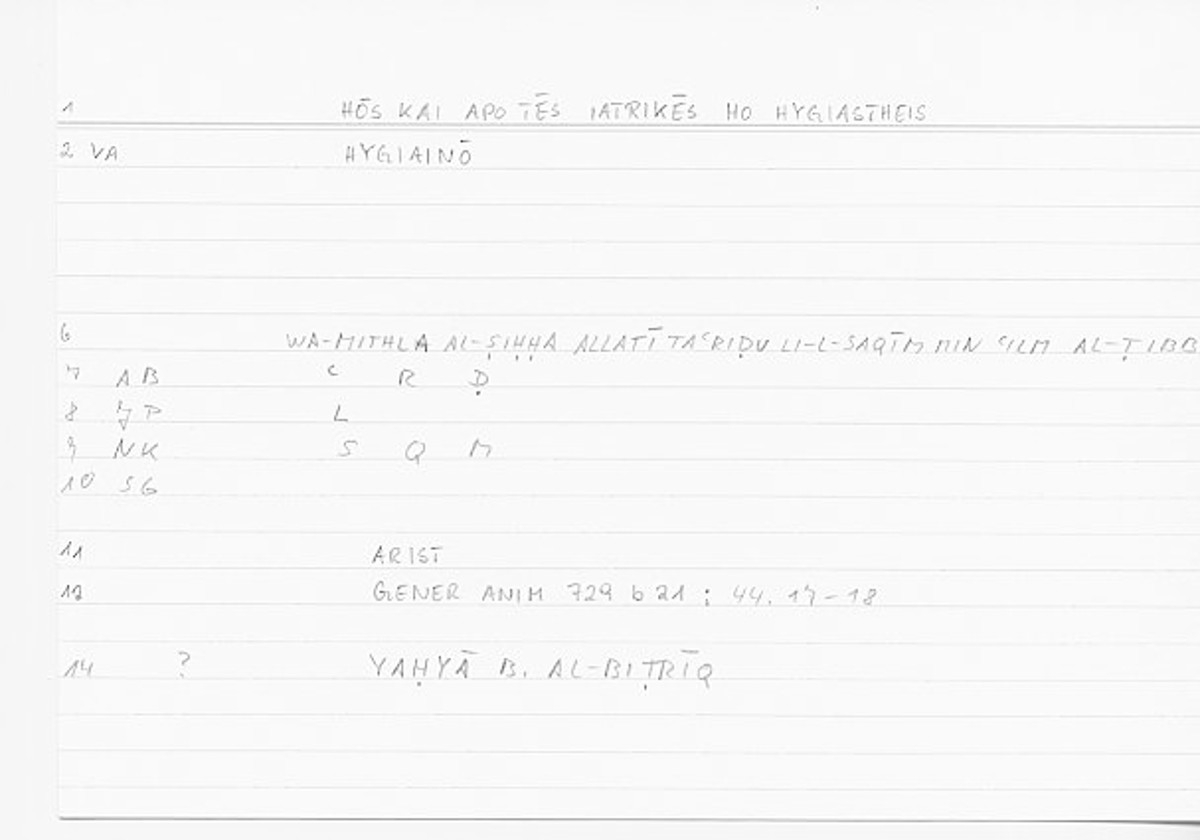 1 HŌS KAI APO TĒS IATRIKĒS HO HYGIASTHEIS
2 VA HYGIAINŌ
6 WA-MITHLA AL-ṢIḤḤA ALLATĪ TAʿRIḌU LI-L-SAQĪM MIN ʿILM AL-ṬIBB
7 AB ʿ R Ḍ
8 L
9 NK S Q M
10 SG
11 ARIST
GENER ANIM 729 b 21 ; 44. 17-18
14 ? YAḤYĀ B. AL-BIṬRĪQ